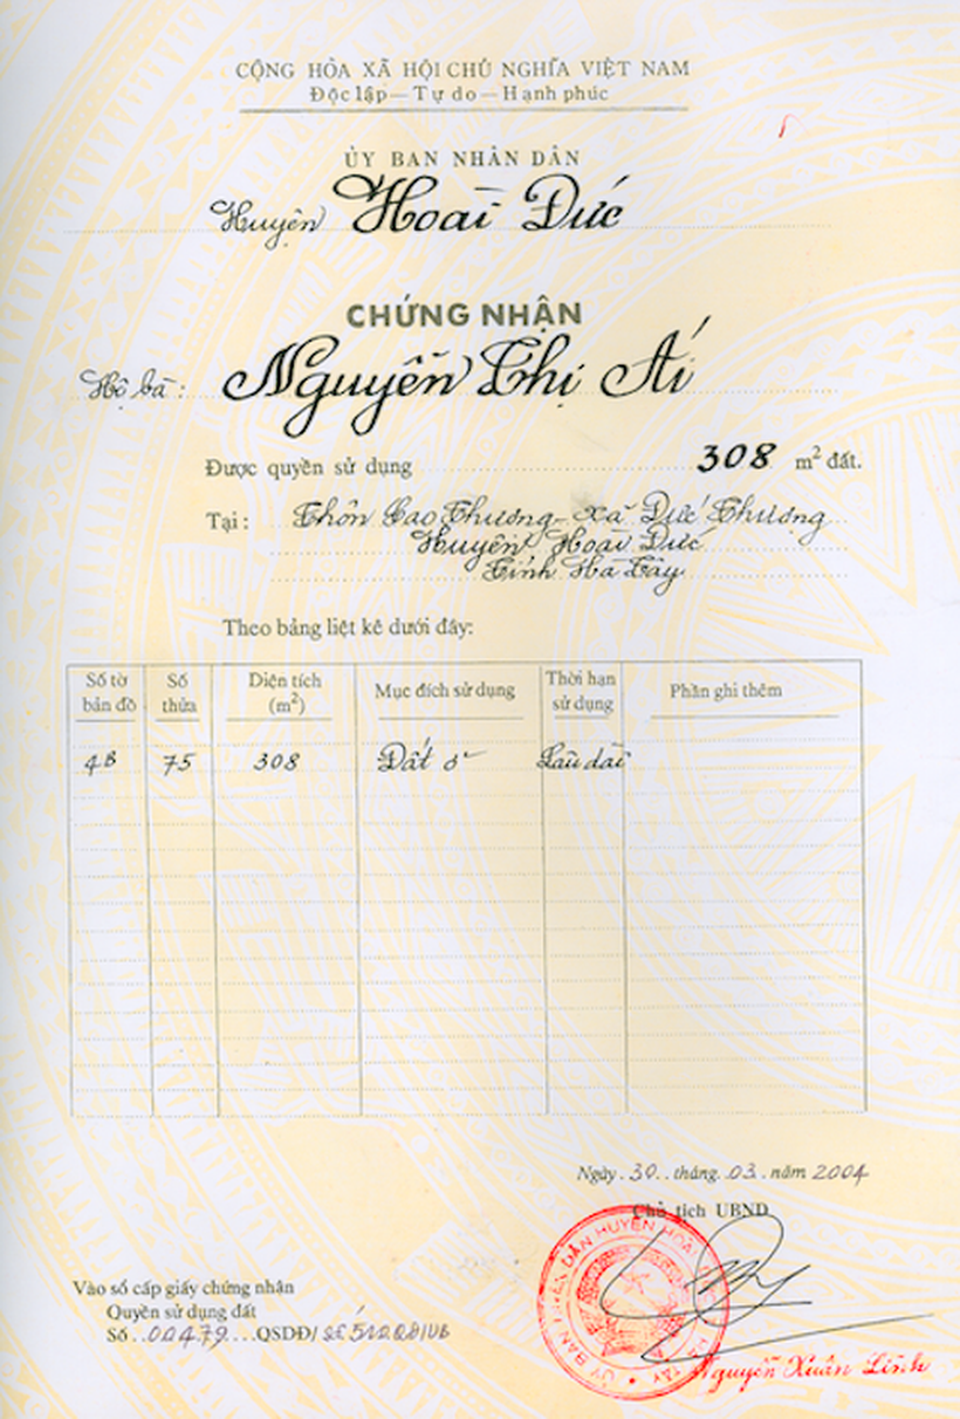 CỘNG HÒA XÃ HỘI CHỦ NGHĨA VIỆT NAM
Độc lập — Tự do — Hạnh phúc
ỦY BAN NHÂN DÂN
Huyện Hoài Đức
CHỨNG NHẬN
Hộ bà: Nguyễn Thị Ái
Được quyền sử dụng 308 m² đất.
Tại: Thôn Cao Thượng - Xã Đức Thượng
Huyện Hoài Đức
Tỉnh Hà Tây
Theo bảng liệt kê dưới đây:
Số tờ bản đồ Số thửa Diện tích (m²) Mục đích sử dụng Thời hạn sử dụng Phần ghi thêm
4B 75 308 Đất ở Lâu dài
Ngày 30 tháng 03 năm 2004
Chủ tịch UBND
ỦY BAN NHÂN DÂN HUYỆN HOÀI
Vào sổ cấp giấy chứng nhận
Quyền sử dụng đất
Số 00479 QSDĐ/
Nguyễn Xuân Lĩnh